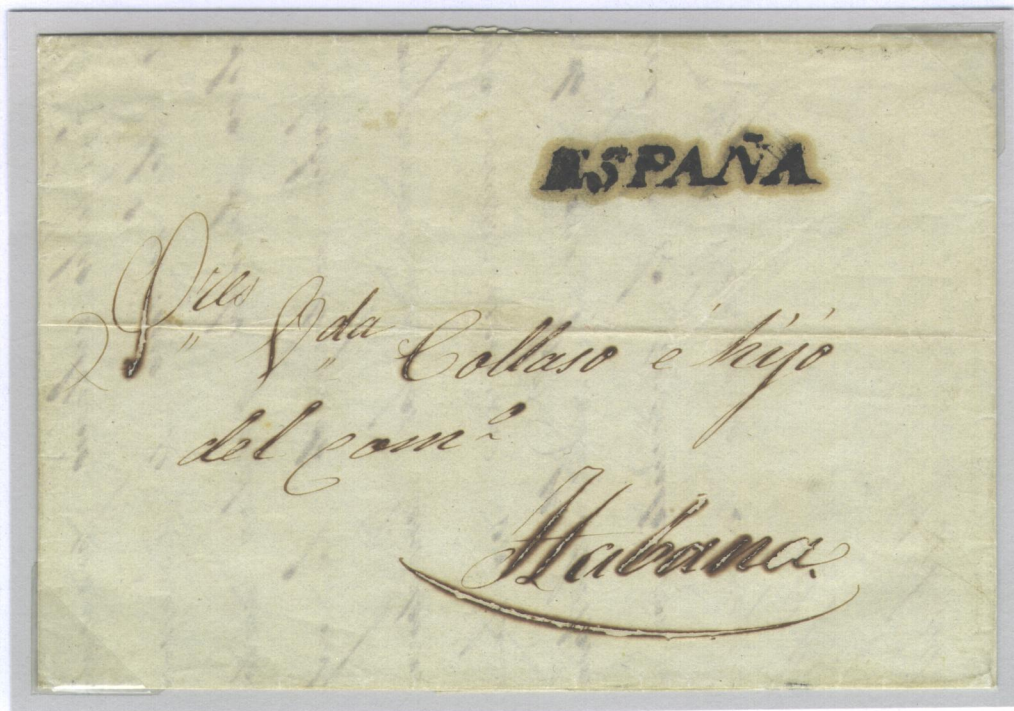 ESPAÑA
S.res V.da Collaso é hijo
del com.o
Habana.